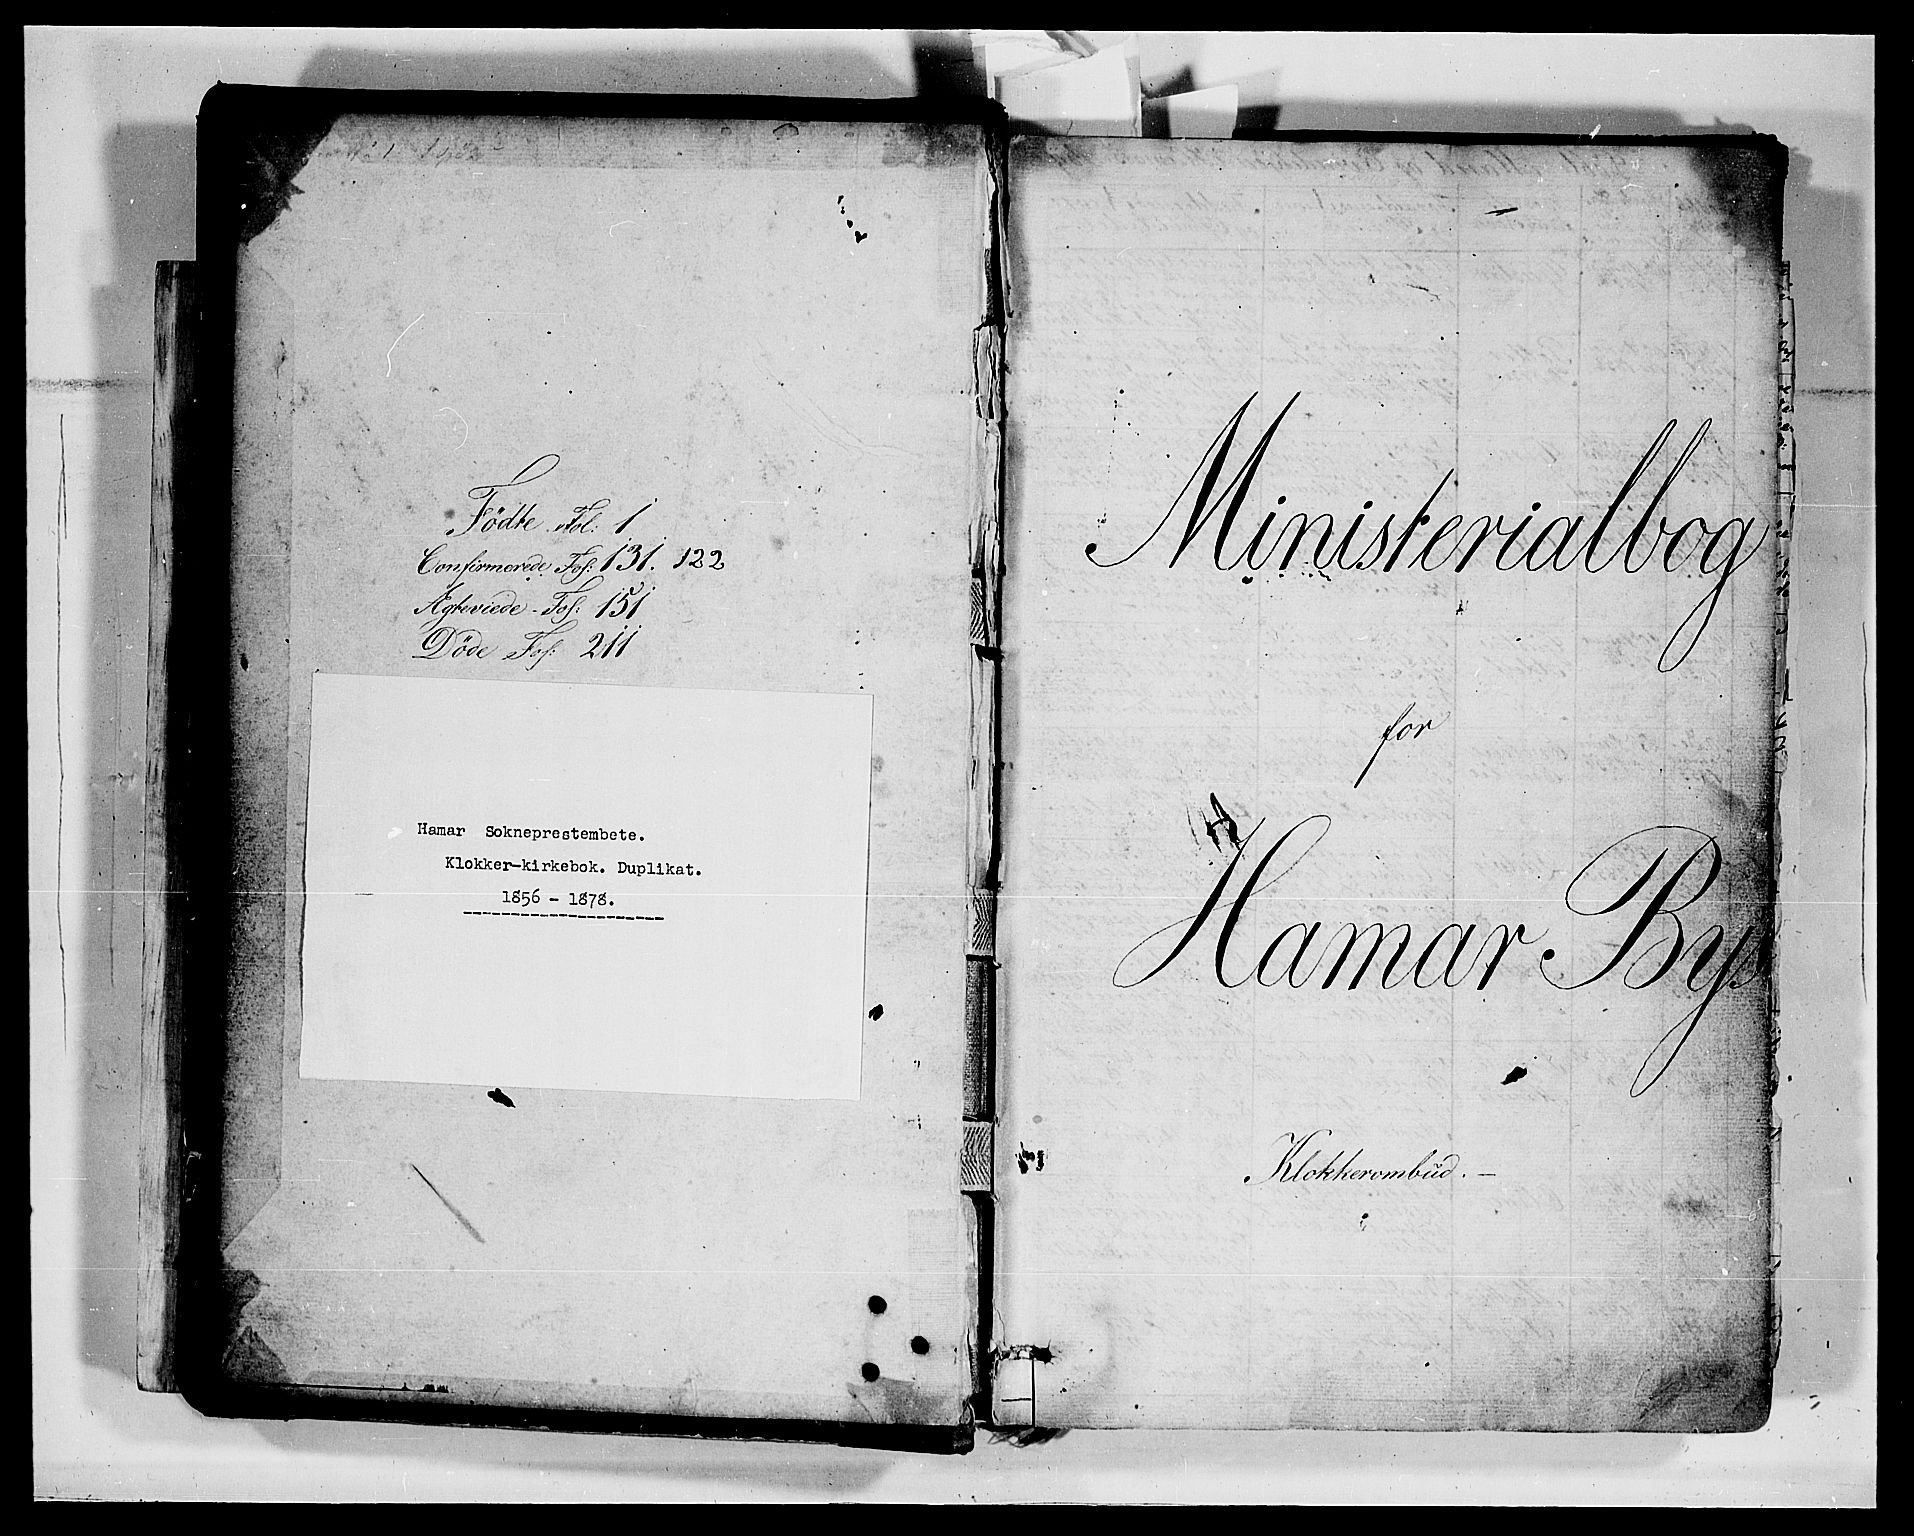 Födte Fol: 1
Confirmerede Fol: 131. 122
Ægteviede - Fol: 151
Döde Fol: 211
Hamar Sokneprestembete.
Klokker-kirkebok. Duplikat.
1856 - 1878.
Ministerialbog
for
Hamar Bys
Klokkerombud. —